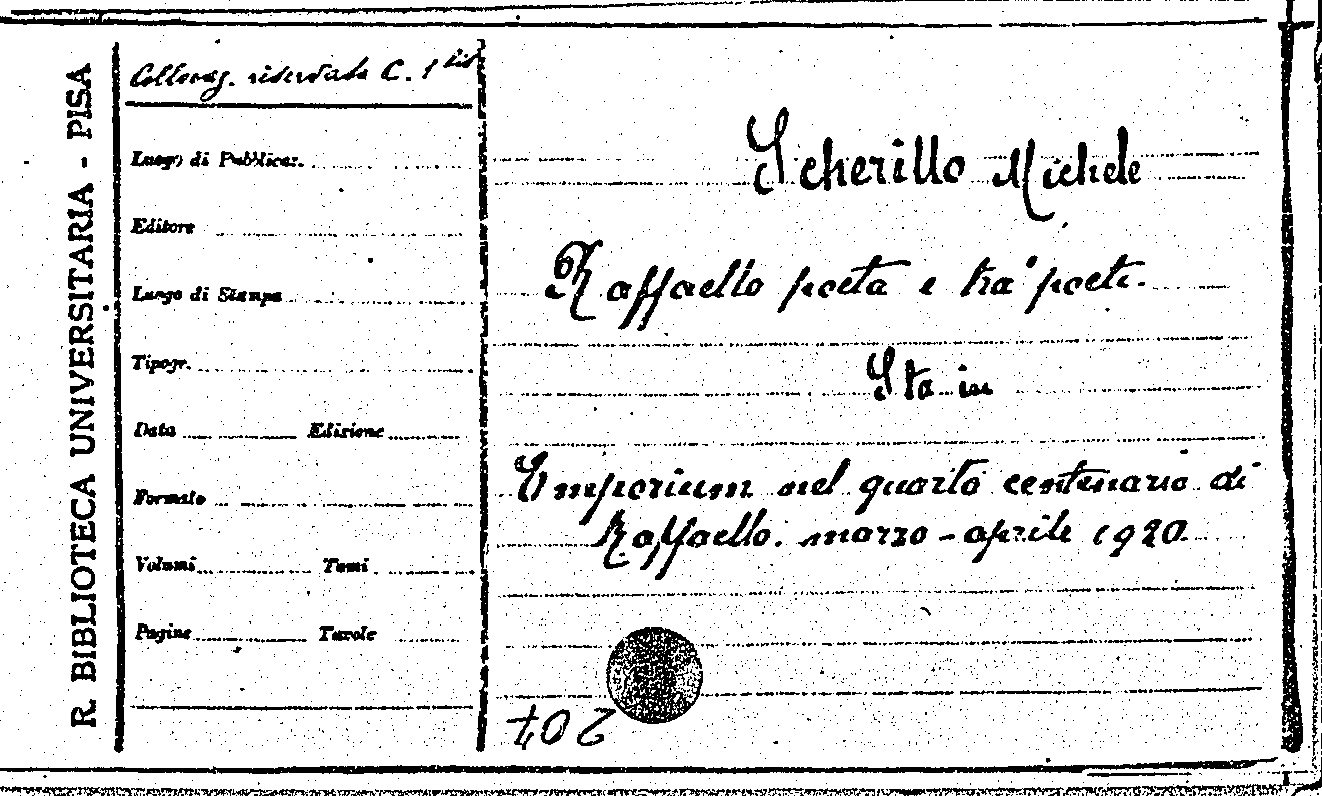 R. BIBLIOTECA UNIVERSITARIA - PISA
Collocaz. riservata C. 1 bis
Luogo di Pubblicaz.
Editore
Luogo di Stampa
Tipogr.
Data Edizione
Formato
Volumi Tomi
Pagine Tavole
Scherillo Michele
Raffaello poeta e tra' poeti.
Sta in
Emporium nel quarto centenario di
Raffaello. marzo - aprile 1920
207